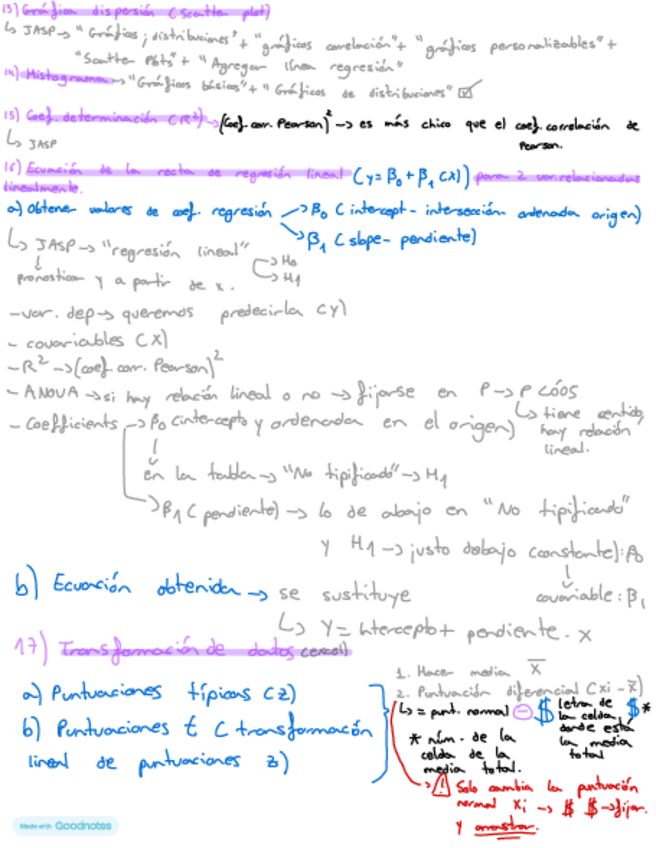 13) Gráfica dispersión (Scatter plot)
↳ JASP → "Gráficos; distribuciones" + "gráficos correlación" + "gráficos personalizables" +
"Scatter Plots" + "Agregar línea regresión"
14) Histograma → "Gráficos básicos" + "Gráficos de distribuciones" ☑
15) Coef. determinación (R²) → (Coef. corr. Pearson)² → es más chico que el coef. correlación de
Pearson.
↳ JASP
16) Ecuación de la recta de regresión lineal (y = β₀ + β₁ (x)) para 2 var. relacionadas
linealmente.
a) Obtener valores de coef. regresión → β₀ (intercept - intersección ordenada origen)
→ β₁ (slope - pendiente)
↳ JASP → "regresión lineal" → H₀
→ H₁
↓
pronosticar y a partir de x.
- var. dep → queremos predecirla (y)
- covariables (x)
- R² → (coef. corr. Pearson)²
- ANOVA → si hay relación lineal o no → fijarse en P → P < 0,05
↳ tiene sentido,
hay relación
lineal.
- Coefficients → β₀ (intercepto y ordenada en el origen)
↓
en la tabla → "No tipificado" → H₁
→ β₁ (pendiente) → lo de abajo en "No tipificado"
y H₁ → justo debajo (constante): β₀
↓
covariable: β₁
b) Ecuación obtenida → se sustituye
↳ Y = Intercepto + pendiente · x
17) Transformación de datos (excel)
a) Puntuaciones típicas (z)
b) Puntuaciones t (transformación
lineal de puntuaciones z)
1. Hacer media x̄
2. Puntuación diferencial (xi - x̄)
↳ = punt. normal - $ letra de
la celda
donde está
la media
total $ *
* núm. de la
celda de la
media total.
→ ⚠ Solo cambia la puntuación
normal xi → $ $ → fijar
y arrastrar.
Made with Goodnotes